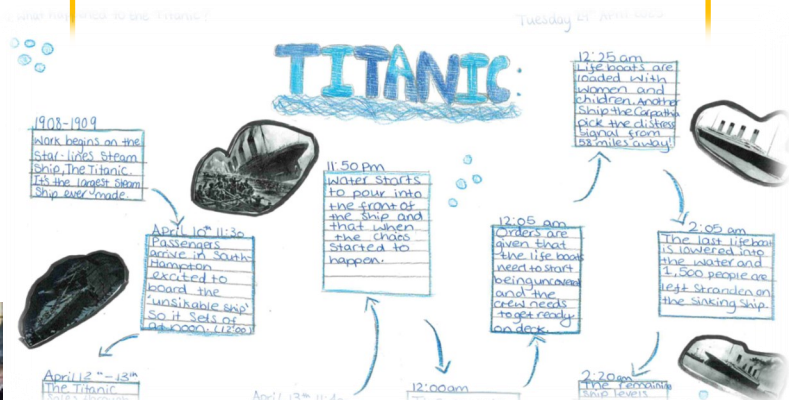 What happened to the Titanic?
Tuesday 21st April
TITANIC:
1908-1909
Work begins on the
Star-lines Steam
Ship, The Titanic.
It's the largest Steam
Ship ever made.
April 10th 11:30
Passengers
arrive in South-
Hampton
excited to
board the
'unsikable ship'
So it Sets of
April 12th-13th
The Titanic
11:50 pm
Water starts
to pour into
the front of
the Ship and
that when
the chaos
Started to
happen.
12:00am
12:05 am
Orders are
given that
the life boats
need to start
being
and the
crew needs
to get ready
on deck.
12:25 am
Life boats are
loaded with
women and
children. Another
Ship the Carpathia
pick the distress
Signal from
58 miles away!
2:05 am
The last lifeboat
is lowered into
the water and
1,500 people are
left Stranden on
the Sinking Ship.
2:20am
The remaining
Ship levels